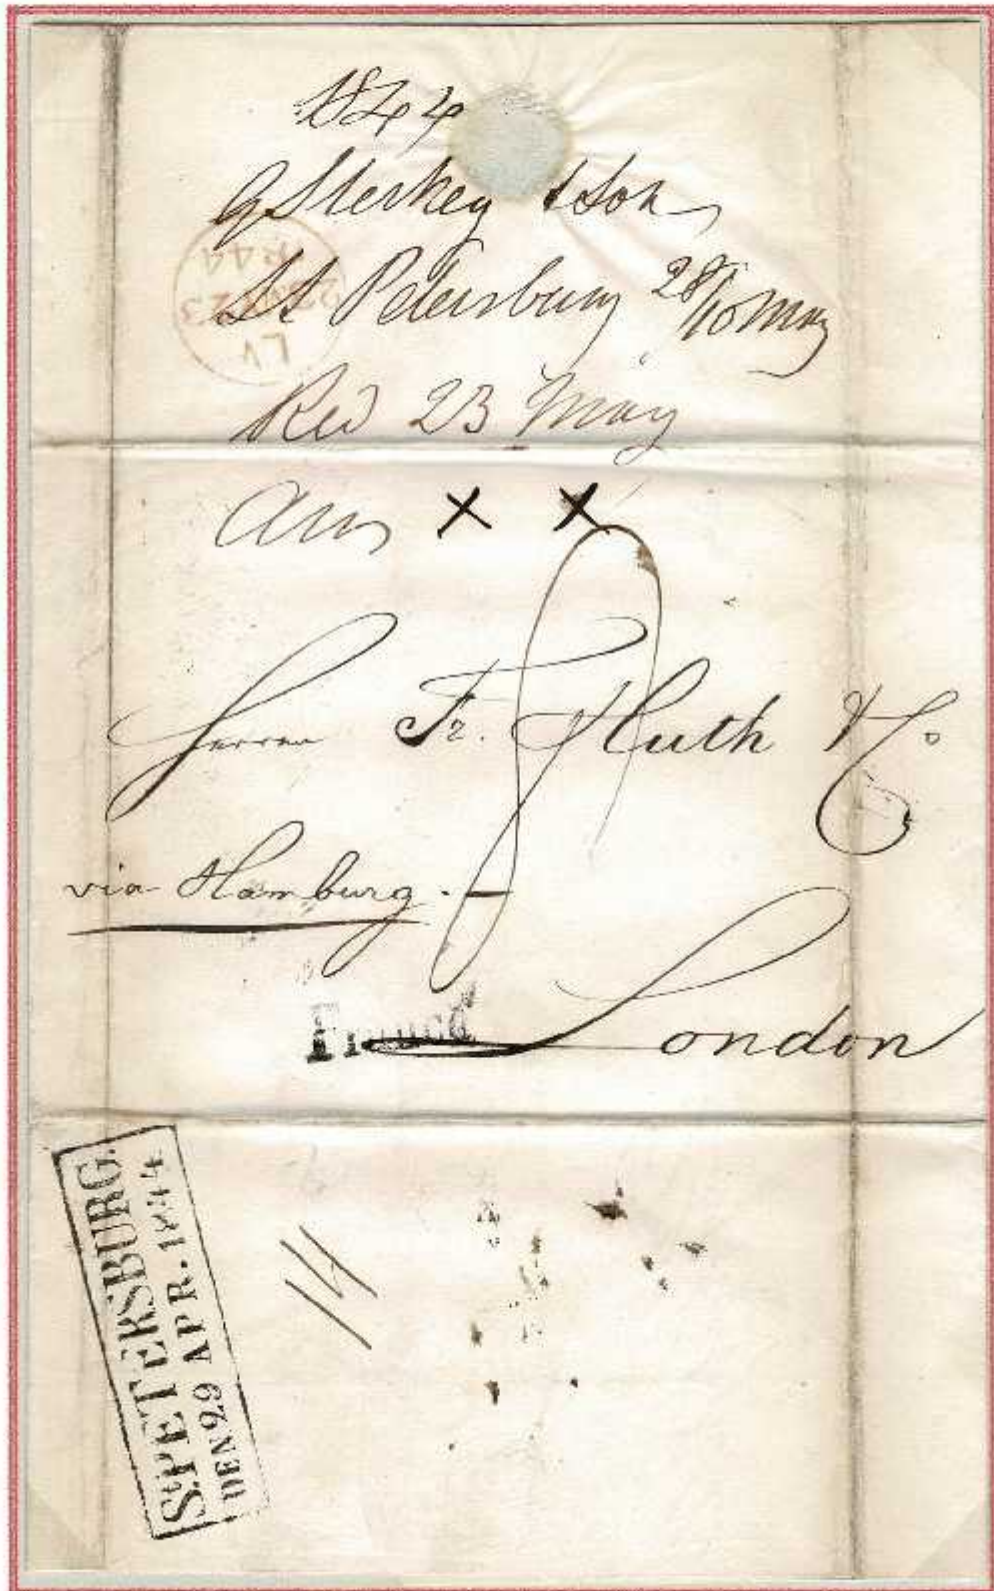 1844
G Sterkey & Son
St Petersburg 28/10 May
Red 23 May
Ans x x
Herren Fr. Huth & Co
via Hamburg.
Franco
London
St. PETERSBURG.
DEN 29 APR. 1844